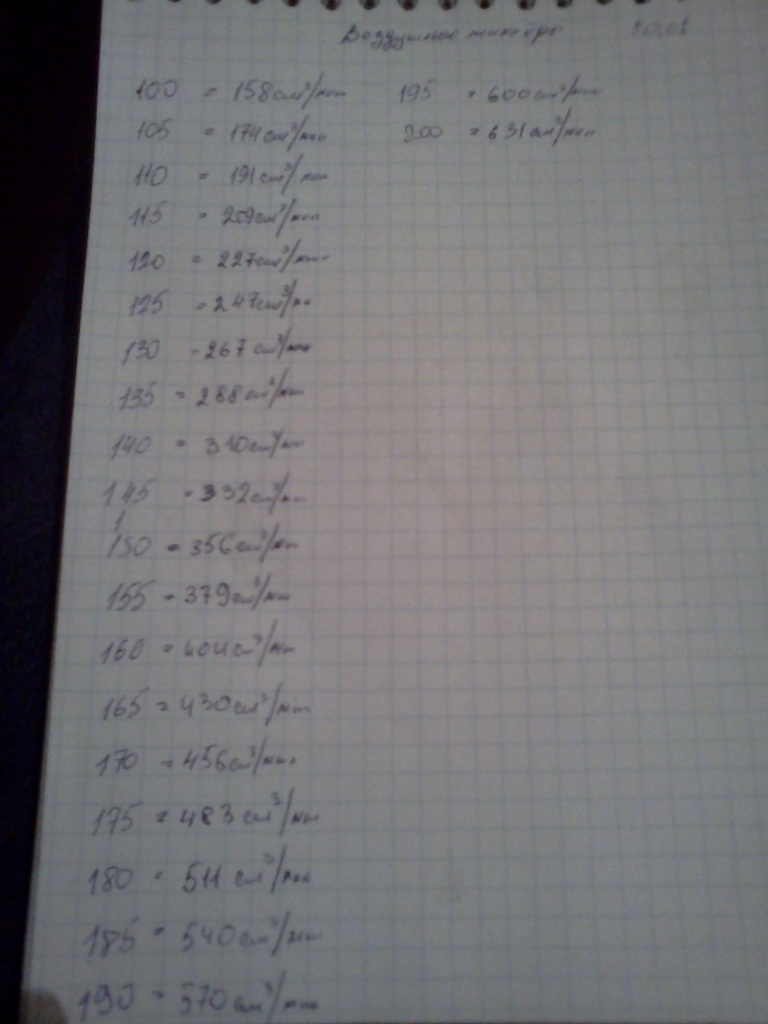 Воздушные жиклёры
100 = 158 см³/мин
105 = 174 см³/мин
110 = 191 см³/мин
115 = 209 см³/мин
120 = 227 см³/мин
125 = 247 см³/мин
130 - 267 см³/мин
135 = 288 см³/мин
140 = 310 см³/мин
145 = 332 см³/мин
150 = 356 см³/мин
155 = 379 см³/мин
160 = 404 см³/мин
165 = 430 см³/мин
170 = 456 см³/мин
175 = 483 см³/мин
180 = 511 см³/мин
185 = 540 см³/мин
190 = 570 см³/мин
195 = 600 см³/мин
200 = 631 см³/мин